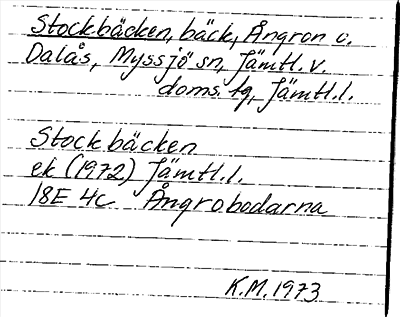 Stockbäcken, bäck, Ångron o.
Dalås, Myssjö sn, Jämtl. v.
doms. tg, Jämtl. l.
Stockbäcken
ek (1972) Jämtl. l.
18E 4c Ångrobodarna
K.M. 1973